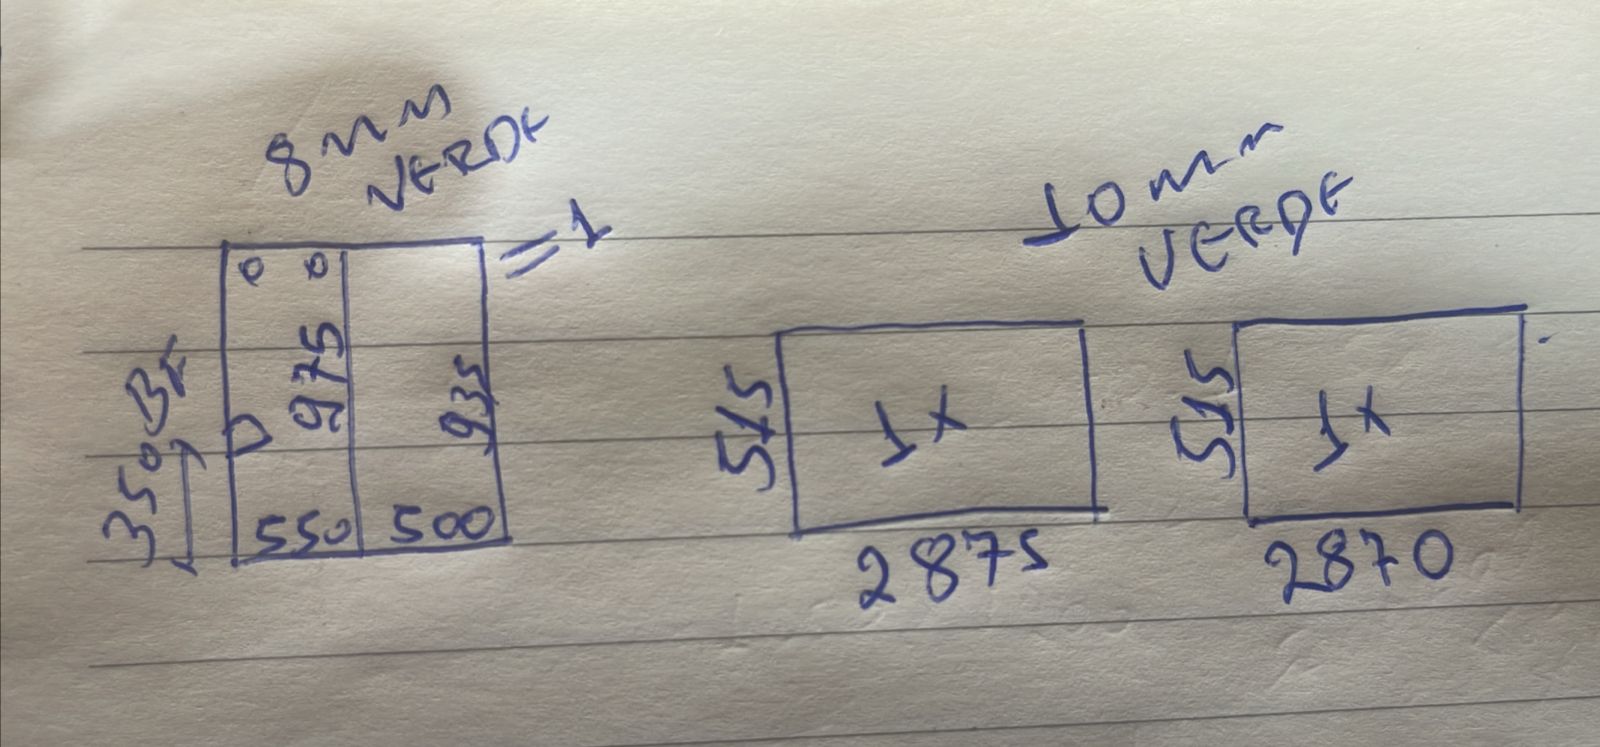 8mm
VERDE
=1
350 BF
975
935
550
500
10mm
VERDE
515
1x
2875
515
1x
2870